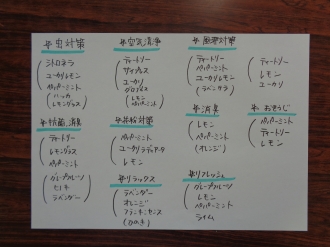 # 虫対策
シトロネラ
ユーカリレモン
ペパーミント
ハッカ
レモングラス
# 空気清浄
ティートリー
サイプレス
ユーカリ
レモン
ペパーミント
# 風邪対策
ティートリー
ペパーミント
ユーカリ
(ラベンサラ)
ティートリー
レモン
ユーカリ
# 消臭
レモン
ペパーミント
(オレンジ)
# おそうじ
ペパーミント
ティートリー
レモン
# 抗菌、消臭
ティートリー
レモングラス
ペパーミント
グレープフルーツ
ヒノキ
ラベンダー
# 花粉対策
ペパーミント
ユーカリラディアータ
レモン
# リラックス
ラベンダー
オレンジ
フランキンセンス
(ひのき)
# リフレッシュ
グレープフルーツ
レモン
ペパーミント
ライム